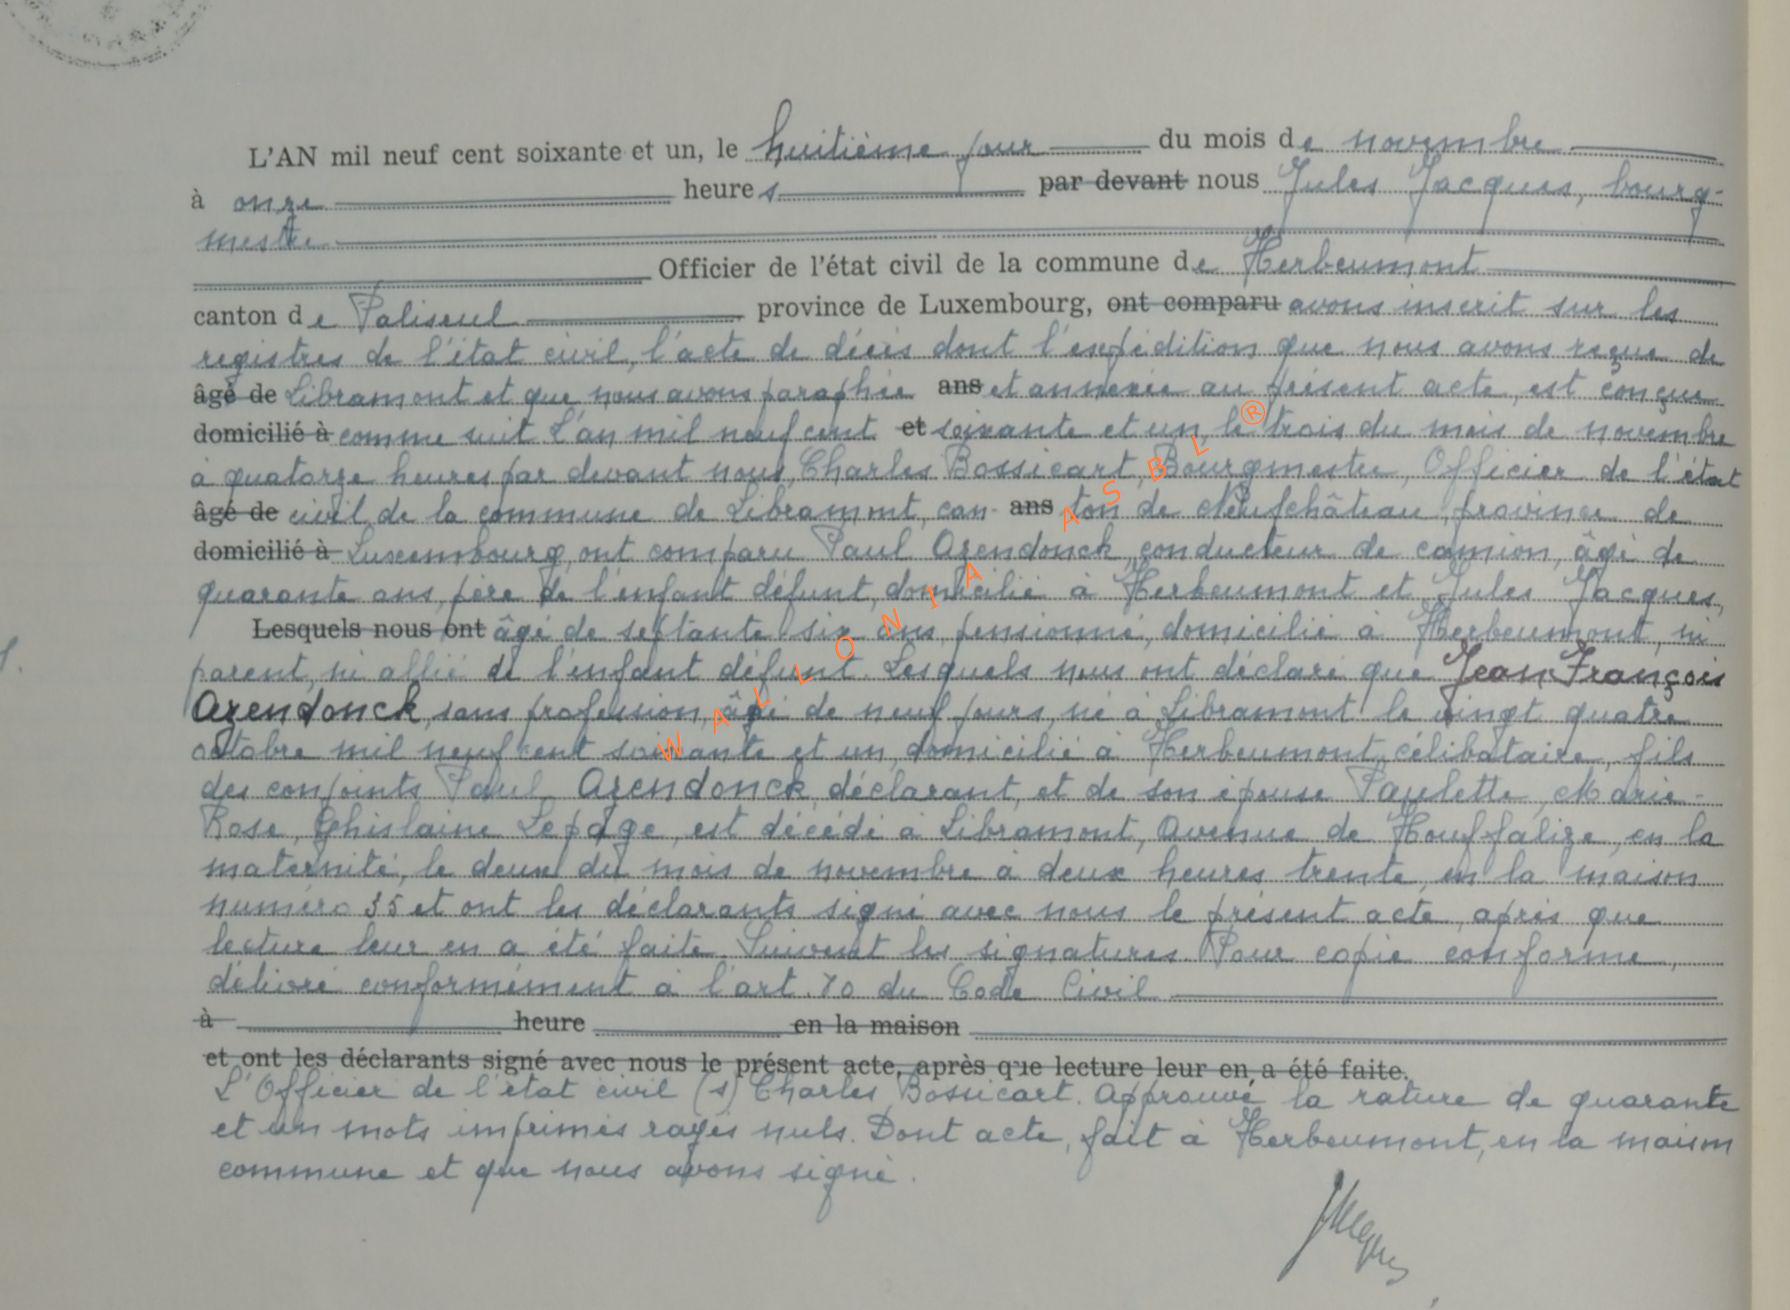 L'AN mil neuf cent soixante et un, le huitième jour du mois de novembre
à onze heures par devant nous Jules Jacques, bourg-
mestre
Officier de l'état civil de la commune de Herbeumont
canton de Paliseul province de Luxembourg, ont comparu avons inscrit sur les
registres de l'état civil, l'acte de décès dont l'expédition que nous avons reçue de
âgé de Libramont et que nous avons paraphée ans et annexée au présent acte, est conçue
domicilié à comme suit L'an mil neuf cent et soixante et un, le trois du mois de novembre
à quatorze heures par devant nous, Charles Bossicart, Bourgmestre, Officier de l'état
âgé de civil de la commune de Libramont, can- ans ton de Neufchâteau, province de
domicilié à Luxembourg, ont comparu Paul Arendonck, conducteur de camion, âgé de
quarante ans, père de l'enfant défunt, domicilié à Herbeumont et Jules Jacques,
Lesquels nous ont âgé de septante six ans, pensionné, domicilié à Herbeumont, ni
parent, ni allié de l'enfant défunt. Lesquels nous ont déclaré que Jean François
Arendonck, sans profession, âgé de neuf jours, né à Libramont le vingt quatre
octobre mil neuf cent soixante et un, domicilié à Herbeumont, célibataire, fils
des conjoints Paul Arendonck, déclarant, et de son épouse Paulette, Marie-
Rose, Ghislaine Lepage, est décédé à Libramont, Avenue de Houffalize, en la
maternité, le deux du mois de novembre à deux heures trente, en la maison
numéro 35 et ont les déclarants signé avec nous le présent acte, après que
lecture leur en a été faite. Suivent les signatures. Pour copie conforme,
délivré conformément à l'art. 70 du Code Civil
à heure en la maison
et ont les déclarants signé avec nous le présent acte, après que lecture leur en a été faite.
L'Officier de l'état civil (s) Charles Bossicart. Approuvé la rature de quarante
et un mots imprimés rayés nuls. Dont acte, fait à Herbeumont, en la maison
commune et que nous avons signé.
Jacques
WALLONIA ASBL®